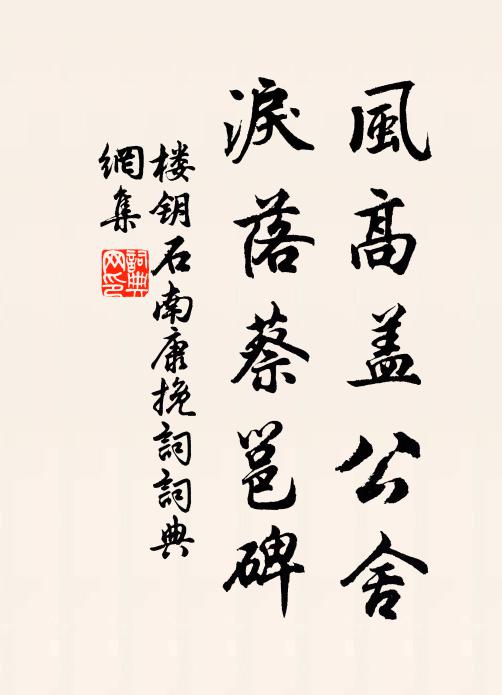 風高盖公舍
淚落蔡邕碑
楼钥石南康挽詞詞典
網集
詞典
网印